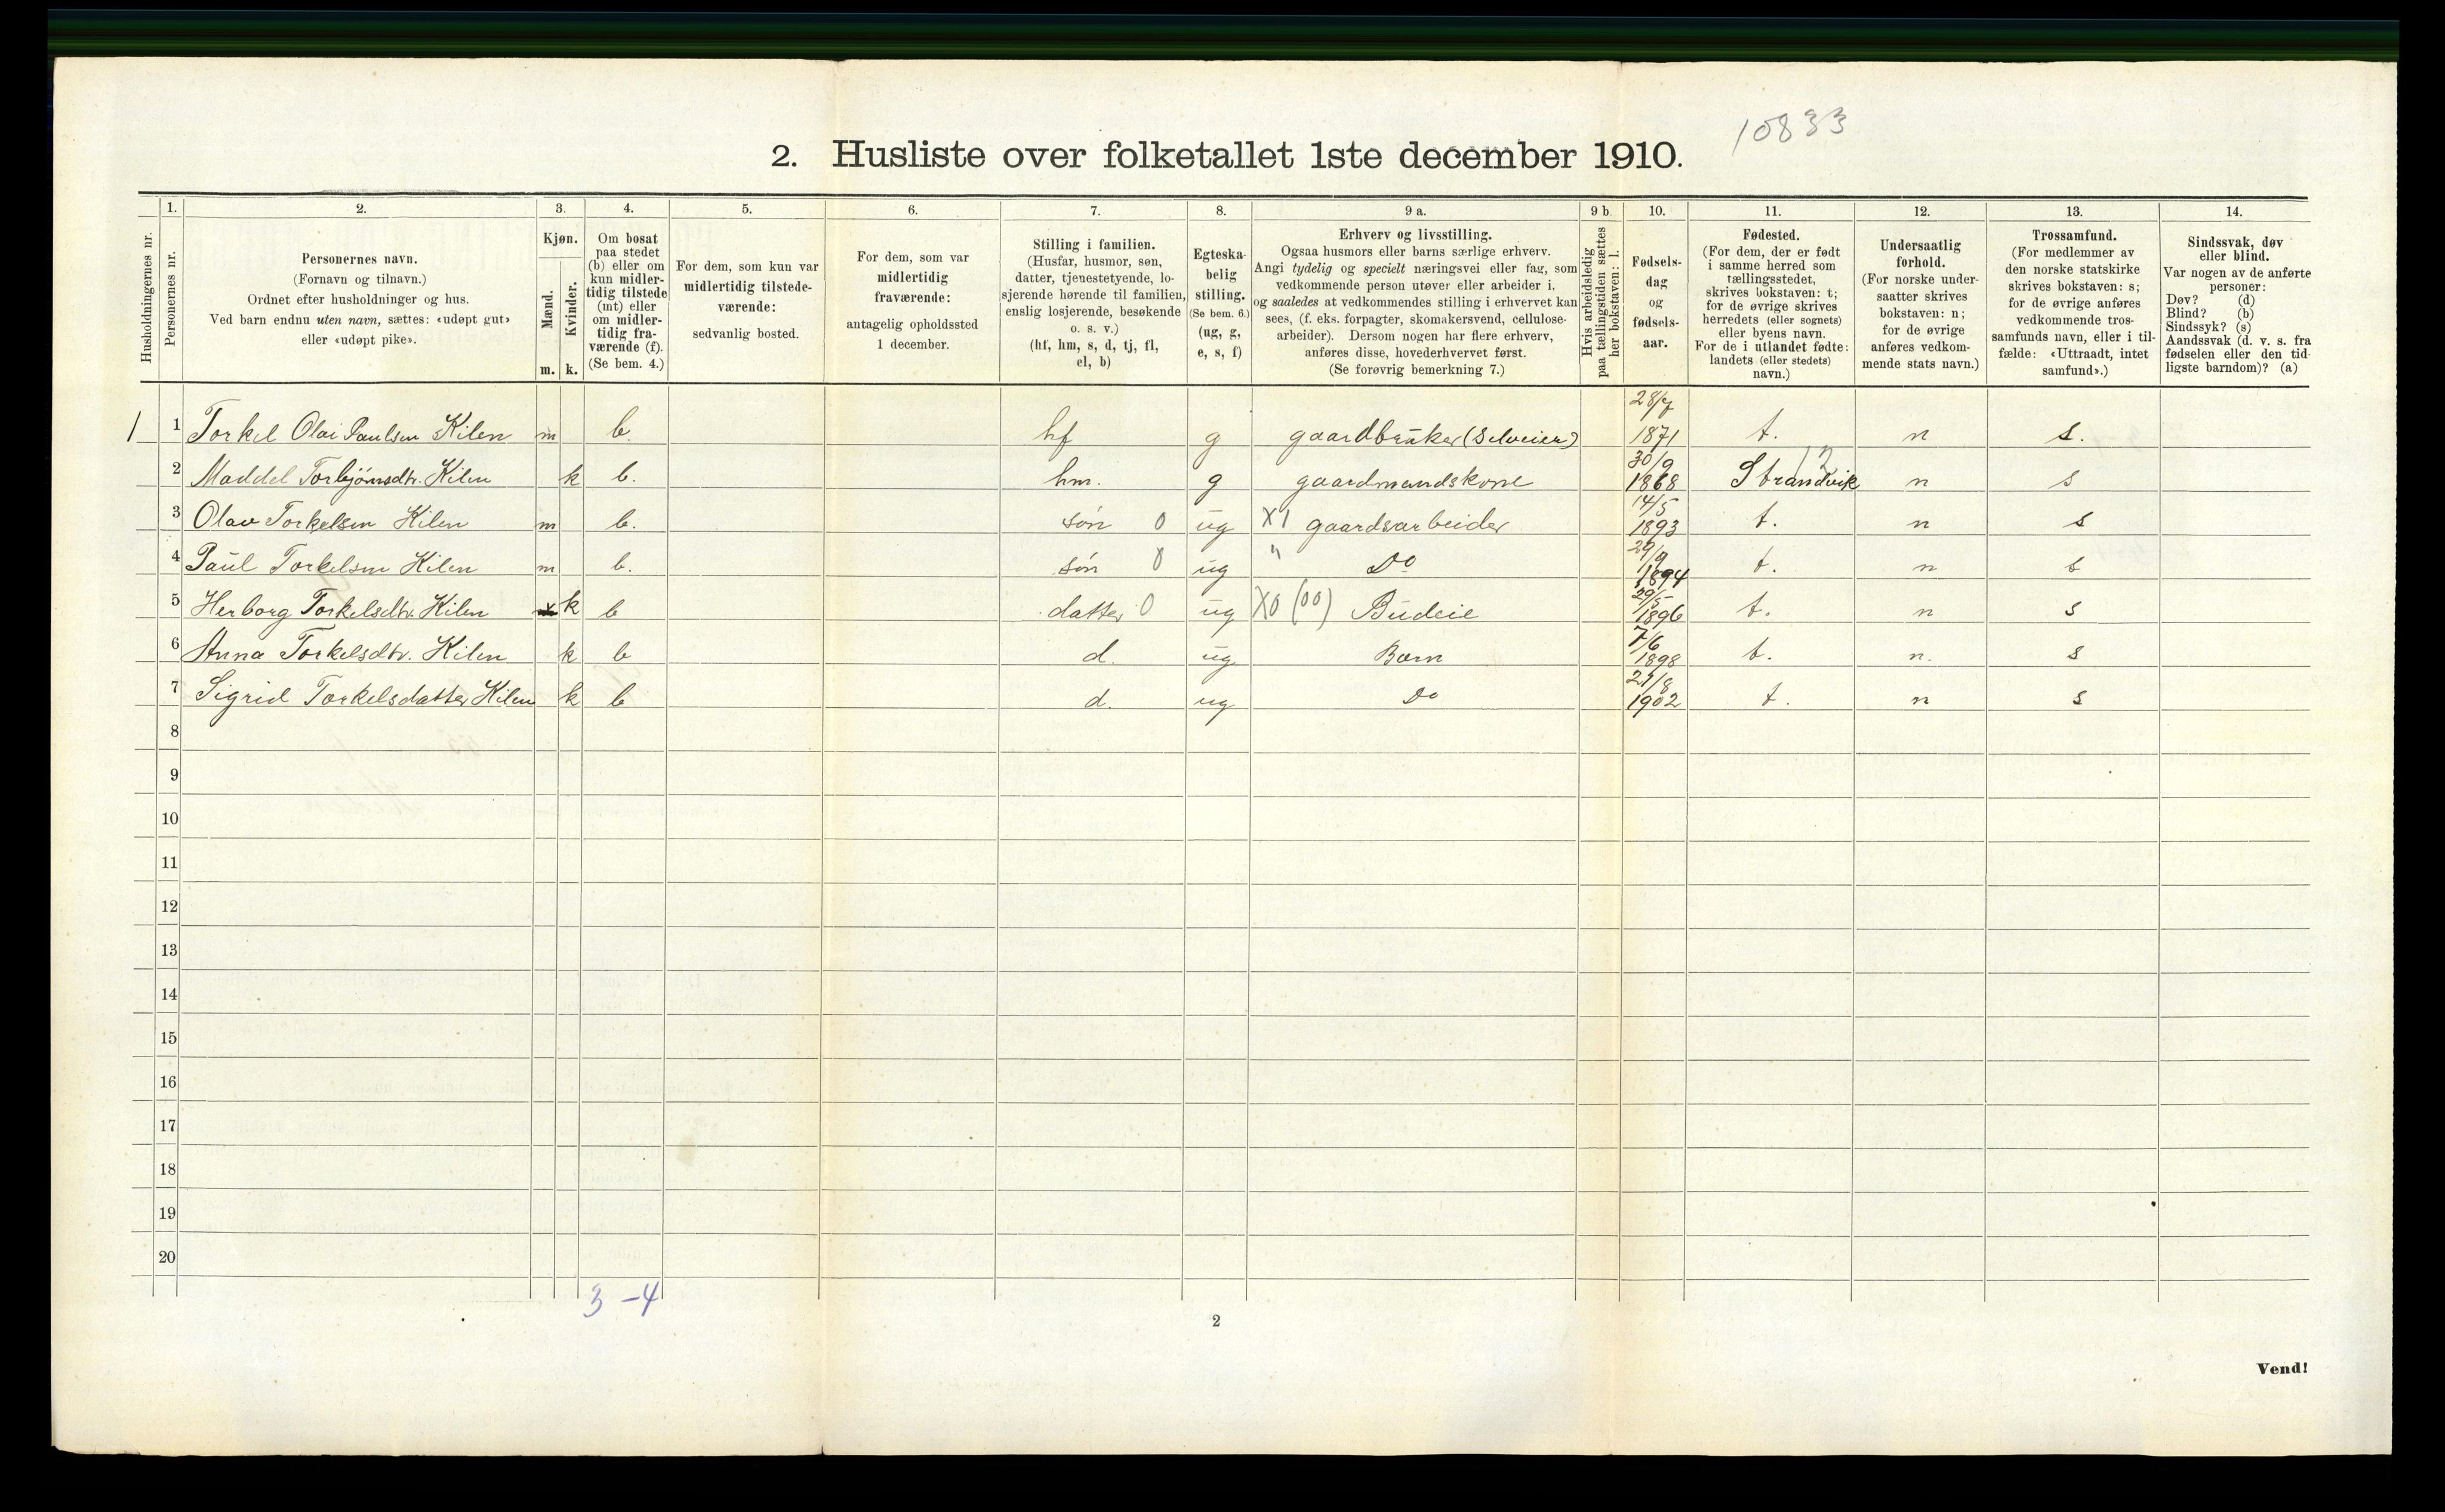 10833
2. Husliste over folketallet 1ste december 1910.
Husholdningernes nr.
1.
Personernes nr.
2.
Personernes navn.
(Fornavn og tilnavn.)
Ordnet efter husholdninger og hus.
Ved barn endnu uten navn, sættes: «udøpt gut»
eller «udøpt pike».
3.
Kjøn.
Mænd.
Kvinder.
m. k.
4.
Om bosat
paa stedet
(b) eller om
kun midler-
tidig tilstede
(mt) eller
om midler-
tidig fra-
værende (f).
(Se bem. 4.)
5.
For dem, som kun var
midlertidig tilstede-
værende:
sedvanlig bosted.
6.
For dem, som var
midlertidig
fraværende:
antagelig opholdssted
1 december.
7.
Stilling i familien.
(Husfar, husmor, søn,
datter, tjenestetyende, lo-
sjerende hørende til familien,
enslig losjerende, besøkende
o. s. v.)
(hf, hm, s, d, tj, fl,
el, b)
8.
Egteska-
belig
stilling.
(Se bem. 6.)
(ug, g,
e, s, f)
9 a.
Erhverv og livsstilling.
Ogsaa husmors eller barns særlige erhverv.
Angi tydelig og specielt næringsvei eller fag, som
vedkommende person utøver eller arbeider i,
og saaledes at vedkommendes stilling i erhvervet kan
sees, (f. eks. forpagter, skomakersvend, cellulose-
arbeider). Dersom nogen har flere erhverv,
anføres disse, hovederhvervet først.
(Se forøvrig bemerkning 7.)
9 b.
Hvis arbeidsledig
paa tællingstiden sættes
her bokstaven: l.
10.
Fødsels-
dag
og
fødsels-
aar.
11.
Fødested.
(For dem, der er født
i samme herred som
tællingsstedet,
skrives bokstaven: t;
for de øvrige skrives
herredets (eller sognets)
eller byens navn.
For de i utlandet fødte:
landets (eller stedets)
navn.)
12.
Undersaatlig
forhold.
(For norske under-
saatter skrives
bokstaven: n;
for de øvrige
anføres vedkom-
mende stats navn.)
13.
Trossamfund.
(For medlemmer av
den norske statskirke
skrives bokstaven: s;
for de øvrige anføres
vedkommende tros-
samfunds navn, eller i til-
fælde: «Uttraadt, intet
samfund».)
14.
Sindssvak, døv
eller blind.
Var nogen av de anførte
personer:
Døv? (d)
Blind? (b)
Sindssyk? (s)
Aandssvak (d. v. s. fra
fødselen eller den tid-
ligste barndom)? (a)
1 1 Torkel Olai Paulsen Kilen m b. hf g gaardbruker (Selveier) 28/7 1871 t. n s.
2 Maddel Torbjörnsdtr. Kilen k b. hm. g gaardmandskone 30/9 1868 Strandvik 12 n s
3 Olav Torkelsen Kilen m b. søn 0 ug X1 gaardsarbeider 14/5 1893 t. n s
4 Paul Torkelsen Kilen m b. søn 0 ug " Do 29/9 1894 t. n s
5 Herborg Torkelsdtr. Kilen k b datter 0 ug X0 (00) Budeie 29/5 1896 t. n s
6 Anna Torkelsdtr. Kilen k b d. ug Barn 7/6 1898 t. n. s
7 Sigrid Torkelsdatter Kilen k b d. ug Do 27/8 1902 t. n s
8
9
10
11
12
13
14
15
16
17
18
19
20
3-4
2
Vend!